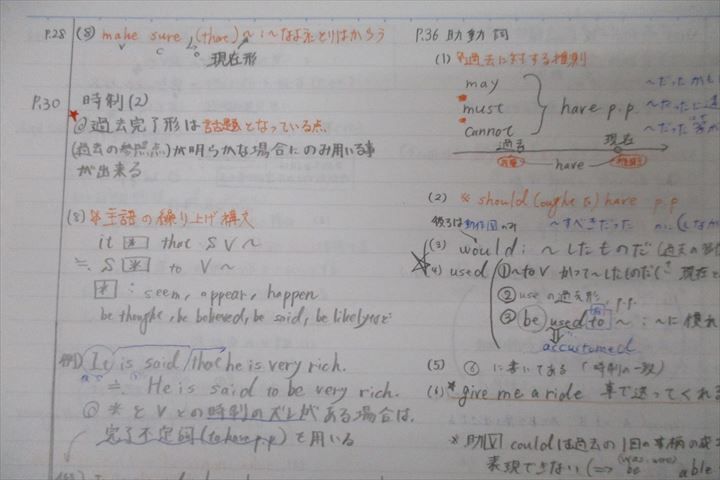 P.28 (8) make sure (that) ~ : ~なようにとりはからう
V C O
現在形
P.30 時制(2)
★◎過去完了形は話題となっている点
(過去の参照点)が明らかな場合にのみ用いる事
が出来る
(8) ※主語の繰り上げ構文
it ＊ that S V ~
≒ S ＊ to V ~
＊ : seem, appear, happen
be thought, be believed, be said, be likely など
例) It is said that he is very rich.
≒ He is said to be very rich.
◎ ＊とVとの時制のズレがある場合は、
完了不定詞(to have p.p)を用いる
P.36 助動詞
(1) ※過去に対する推則
may
must
cannot
have p.p.
~だったかも
~だったに違
~だった
過去 現在
have
(2) ※ should (ought to) have p.p
~すべきだった
(3) would : ~したものだ (過去の
☆(4) used ① ~ to V かつて~したものだ( 現在と
② use の過去形, p.p.
③ be used to ~ : ~に慣れ
accustomed
(5) ⑥ に書いてある (時制の一致)
(6) * give me a ride 車で送ってくれる
※ 助V could は過去の1回の事柄の
表現できない (⇒ be able
(was, were)